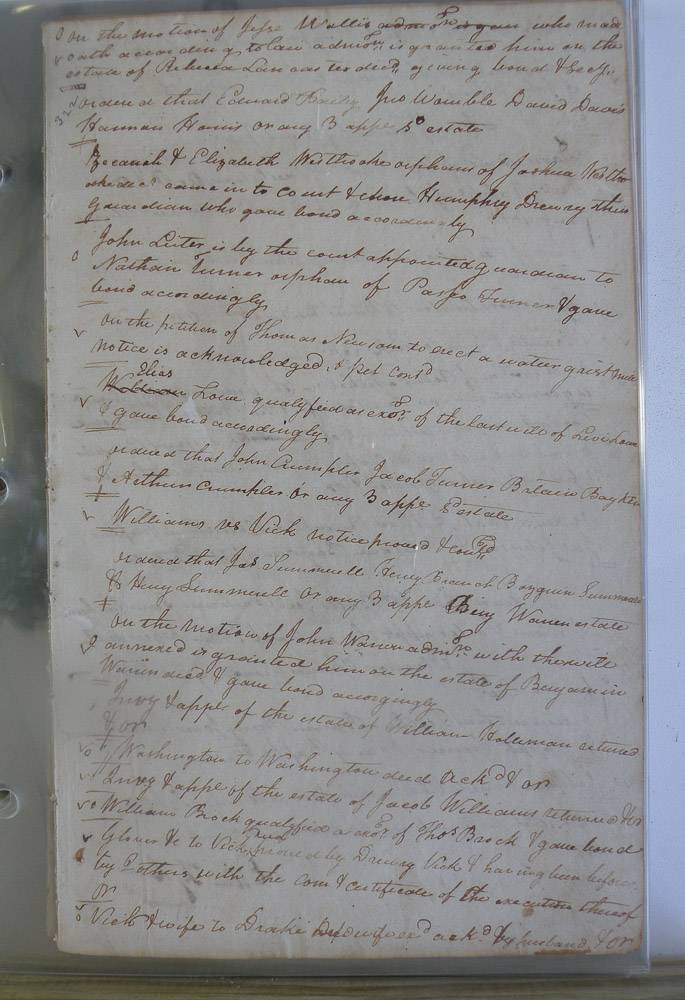 on the motion of Jesse Wallis adm:on is gran who mad
oath according to law adm:on is granted him on the
estate of Rebecca Lancaster decd giving bond & secy
ordered that Edward Baily Jno Womble David Davis
Harman Harris or any 3 appe sd estate
& Elizabeth Westbrooke orphans of Joshua
came in to court & chose Humphry Drewry their
Guardian who gave bond accordingly
John Luter is by the court appointed guardian to
Nathan Turner orphan of Turner & gave
bond accordingly
on the petition of Thomas Newsom to erect a water grist mill
notice is acknowledged & pet contd
Elias
Lowe qualyfied as exor of the last will of Levi Lowe
& gave bond accordingly
ordered that John Crumpler Jacob Turner Britain Boykin
& Arthur Crumpler or any 3 appe estate
Williams vs Vick notice proved & contd
ordered that Jas Summerell Henry Branch Summerell
& Henry Summerell or any 3 appe Benj Warren estate
on the motion of John Warren adm:on with the will
annexed is granted him on the estate of Benjamin
Warren decd & gave bond accorgingly
Invy & appt of the estate of William Holleman returned
& or
Washington to Washington deed ackd & or
Invy & appt of the estate of Jacob Williams returned & or
William Brock qualyfied as exor of Thos Brock & gave bond
Glover &c to Vick proved by Drewry Vick & having been before
by 2 others with the com & certificate of the execution thereof
or
Vick & wife to Drake ackd by husband & or